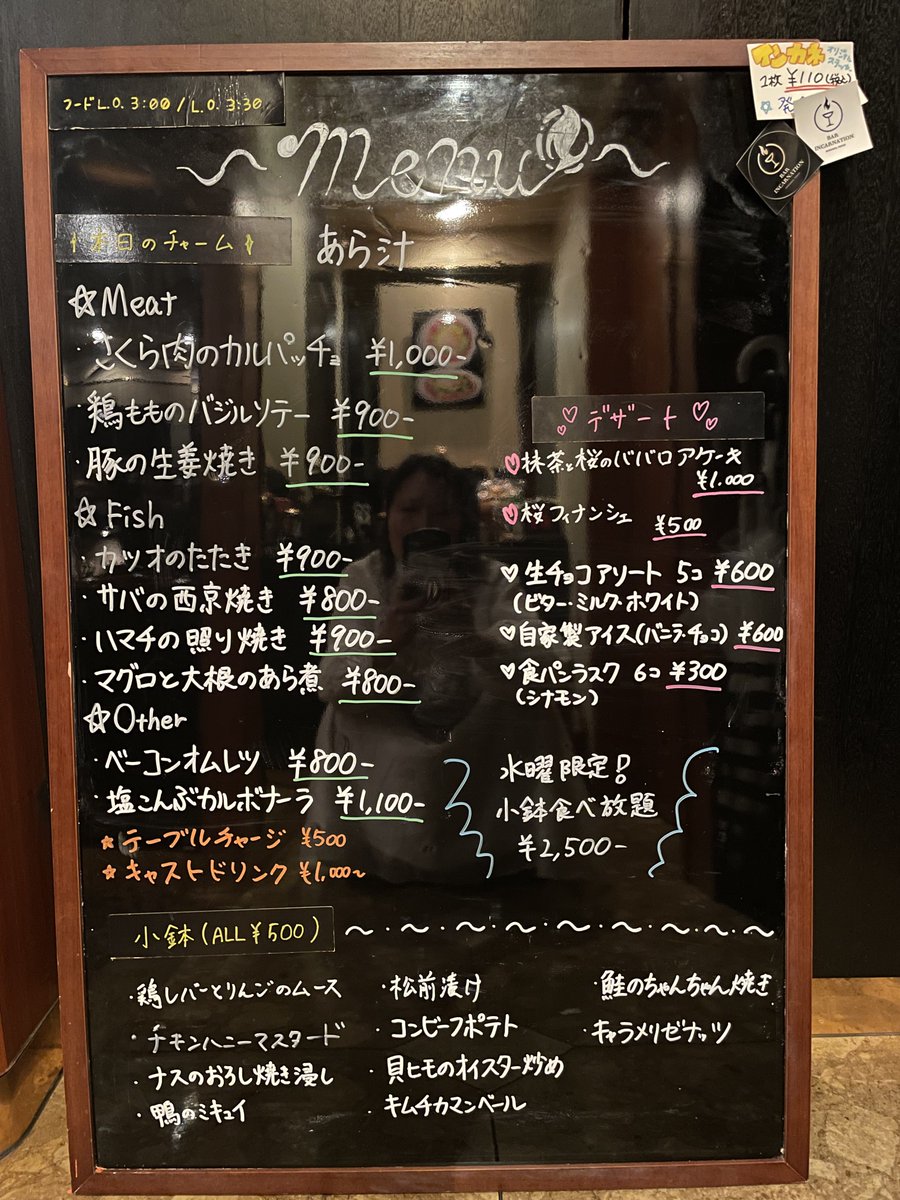 フードL.O. 3:00 / L.O. 3:30
インカネ オリジナルステッカー
1枚 ¥110(税込)
BAR INCARNATION
BAR INCARNATION
Menu
本日のチャーム
あら汁
☆Meat
・さくら肉のカルパッチョ ¥1,000-
・鶏もものバジルソテー ¥900-
・豚の生姜焼き ¥900-
☆Fish
・カツオのたたき ¥900-
・サバの西京焼き ¥800-
・ハマチの照り焼き ¥900-
・マグロと大根のあら煮 ¥800-
☆Other
・ベーコンオムレツ ¥800-
・塩こんぶカルボナーラ ¥1,100-
☆テーブルチャージ ¥500
☆キャストドリンク ¥1,000~
♡デザート♡
♡抹茶と桜のババロアケーキ
¥1,000
♡桜フィナンシェ ¥500
♡生チョコアソート 5コ ¥600
(ビター・ミルク・ホワイト)
♡自家製アイス(バニラ・チョコ) ¥600
♡食パンラスク 6コ ¥300
(シナモン)
水曜限定!
小鉢食べ放題
¥2,500-
小鉢(ALL ¥500)
・鶏レバーとりんごのムース
・チキンハニーマスタード
・ナスのおろし焼き浸し
・鴨のミキュイ
・松前漬け
・コンビーフポテト
・貝ヒモのオイスター炒め
・キムチカマンベール
・鮭のちゃんちゃん焼き
・キャラメリゼナッツ